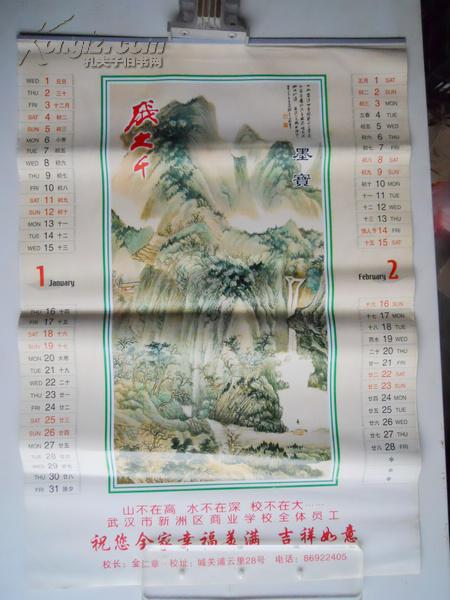 Kongfz.com
孔夫子旧书网
WED 1 元旦
THU 2 三十
FRI 3 十二月
SAT 4 初二
SUN 5 初三
MON 6 小寒
TUE 7 初五
WED 8 初六
THU 9 初七
FRI 10 初八
SAT 11 初九
SUN 12 初十
MON 13 十一
TUE 14 十二
WED 15 十三
1 January
THU 16 十四
FRI 17 十五
SAT 18 十六
SUN 19 十七
MON 20 大寒
TUE 21 十九
WED 22 二十
THU 23 廿一
FRI 24 廿二
SAT 25 廿三
SUN 26 廿四
MON 27 廿五
TUE 28 廿六
WED 29 廿七
THU 30 廿八
FRI 31 除夕
张大千
墨寶
正月 1 SAT
初二 2 SUN
初三 3 MON
立春 4 TUE
初五 5 WED
初六 6 THU
初七 7 FRI
初八 8 SAT
初九 9 SUN
初十 10 MON
十一 11 TUE
十二 12 WED
十三 13 THU
情人节 14 FRI
十五 15 SAT
February 2
十六 16 SUN
十七 17 MON
十八 18 TUE
雨水 19 WED
二十 20 THU
廿一 21 FRI
廿二 22 SAT
廿三 23 SUN
廿四 24 MON
廿五 25 TUE
廿六 26 WED
廿七 27 THU
廿八 28 FRI
山不在高 水不在深 校不在大……
武汉市新洲区商业学校全体员工
祝您全家幸福美满 吉祥如意
校长：金仁章 · 校址：城关浦云里28号 电话：86922405